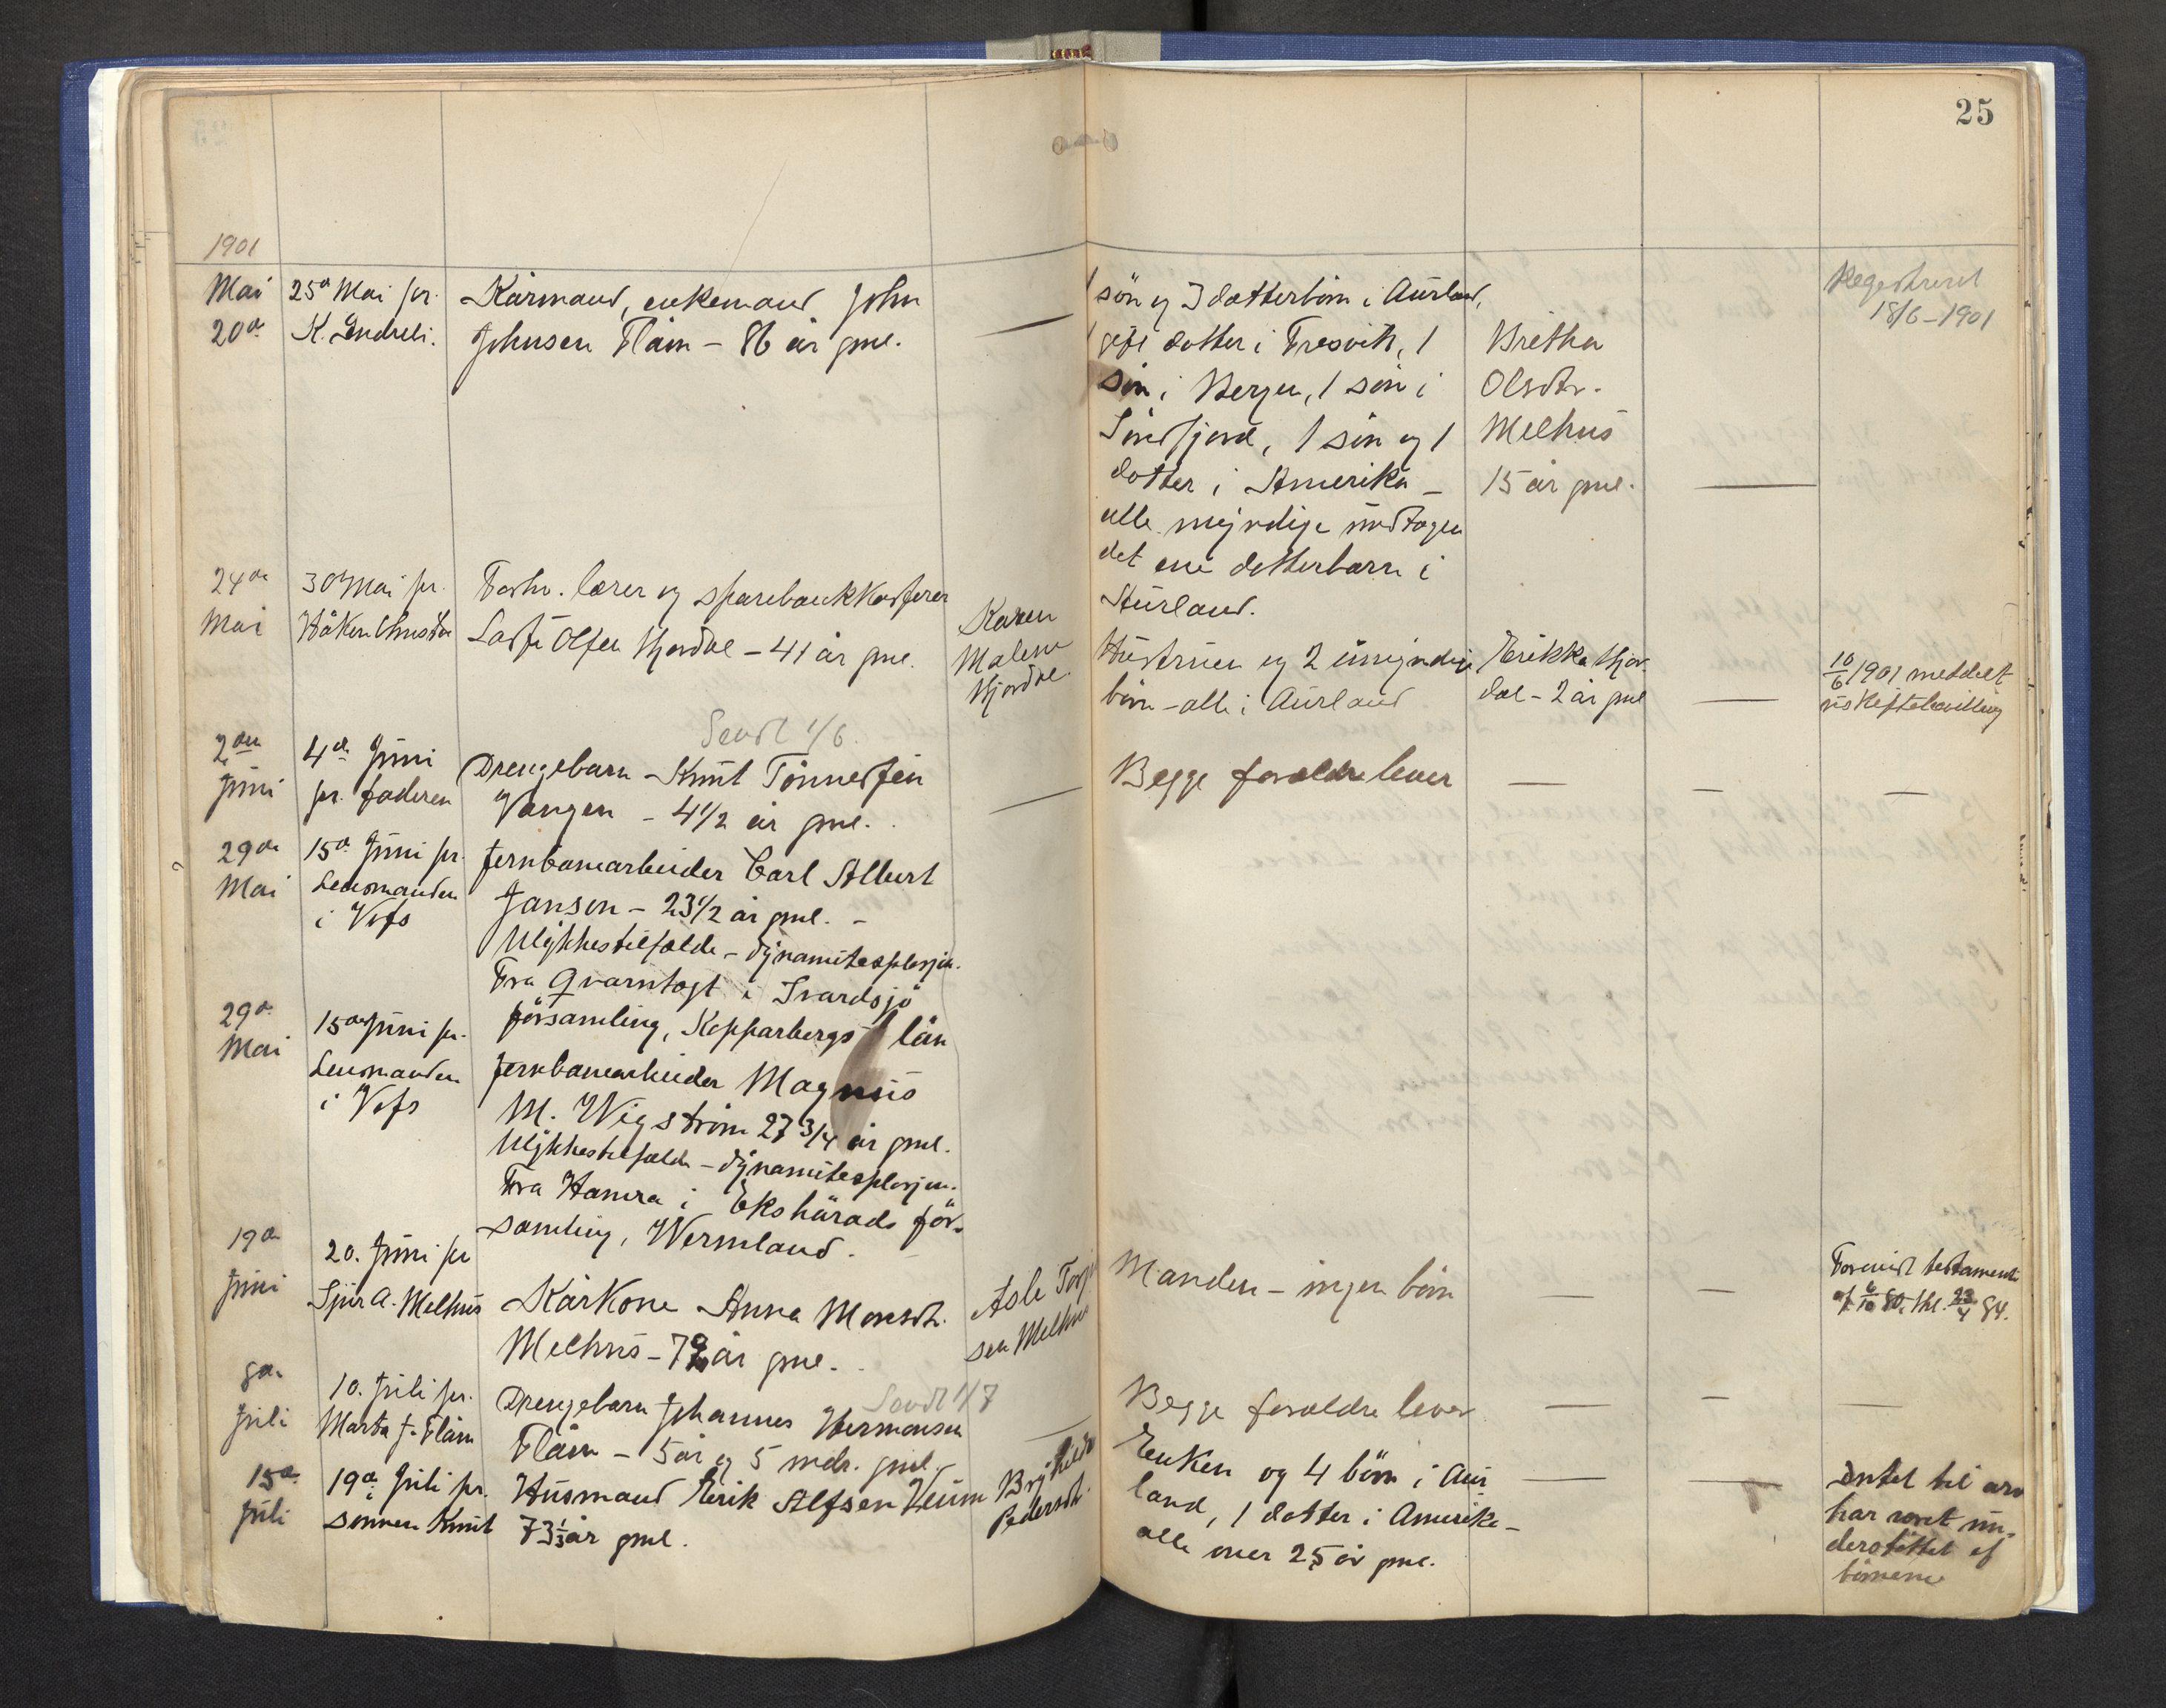 25
1901
Mai
20de
25de Mai pr.
K. Endresen.
Kårmand, enkemand John
Johnsen Flåm – 86 år gml.
1 søn og 3 datterbørn i Aurland,
1 gift datter i Fresvik, 1
søn i Bergen, 1 søn i
Søndfjord, 1 søn og 1
datter i Amerika –
alle myndige undtagen
det ene datterbarn i
Aurland.
Britha
Olsdtr.
Melhus
15 år gml.
Registreret
18/6–1901
24de
Mai
30 Mai pr.
Håken Christia
Forhv. lærer og sparebankkasserer
Lasse Olsen Hjordal – 41 år gml.
Karen
Malene
Hjordal.
Hustruen og 2 umyndige
børn – alle i Aurland
Erikka Hjor-
dal – 2 år gml
10/6 1901 meddelt
uskiftebevilling
Sendt 1/6.
2den
Juni
4de Juni
pr. faderen
Drengebarn Knut Tønnessen
Vangen – 4 1/2 år gml.
Begge forældre lever
29de
Mai
15de Juni pr.
Lensmanden
i Voss
Jernbanearbeider Carl Albert
Janson – 23 1/2 år gml. –
Ulykkestilfælde – dynamiteksplosjon.
Fra Qvarntogt i Svardsjö
församling, Kopparbergs län
29de
Mai
15de Juni pr.
Lensmanden
i Voss
Jernbanearbeider Magnus
M. Wigström 27 3/4 år gml.
Ulykkestilfælde – dynamiteksplosjon.
Fra Hamra i Ekshärads för-
samling, Wermland.
19de
Juni
20. Juni pr
Sjur A. Melhus
Kårkone Anna Monsdtr.
Melhus – 72 år gml.
Asle Torju
sen Melhus
Manden – ingen børn
Forenet testament
af 6/10 80, thl. 23/4 84.
Sendt 1/7
8de
Juli
10. Juli pr.
Marta J. Flåm
Drengebarn Johannes Hermansen
Flåm – 5 år og 5 mdr. gml. –
Begge forældre lever
15de
Juli
19de Juli pr.
sønnen Knut
Husmand Erik Alfsen Veum
73 1/3 år gml.
Brythilda
Pedersdtr.
Enken og 4 børn i Aur
land, 1 datter i Amerika –
alle over 25 år gml.
Intet til arv
har været un-
derstøttet af
børnene